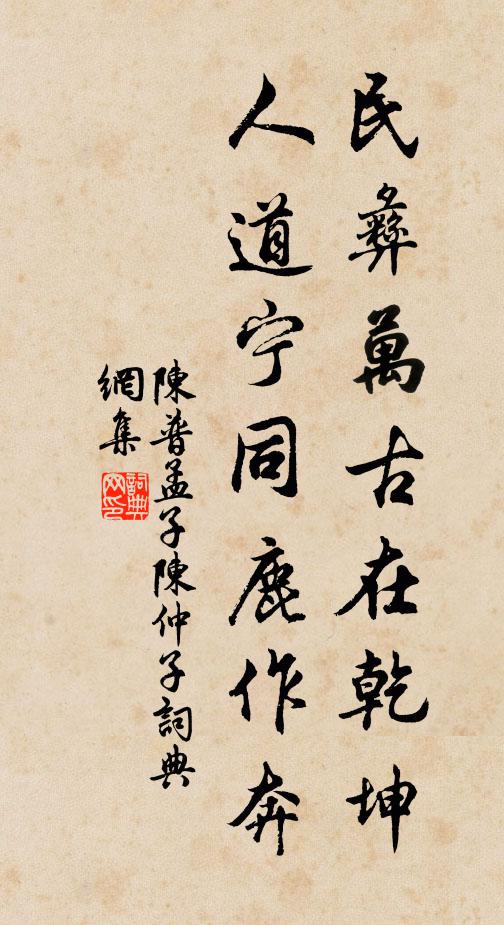 民彝萬古在乾坤
人道宁同鹿作奔
陳普孟子陳仲子詞典
網集
詞典網印